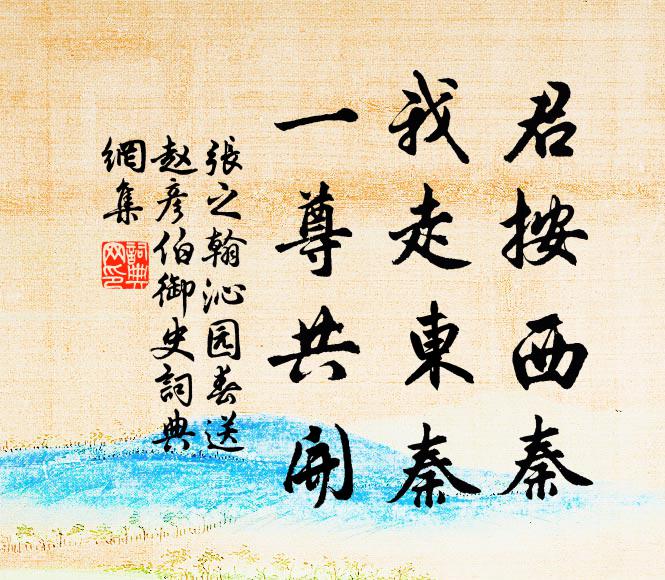 君按西秦
我走東秦
一尊共開
張之翰沁园春送
赵彦伯御史詞典
網集
詞典
网印